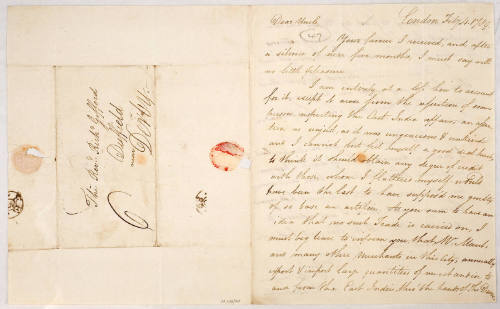 Dear Uncle
London Feby 4 179
47
Your favour I received, and after
a silence of near five months, I must say with
no little pleasure.
I am entirely at a loss how to account
for it, except it arose from the assertion of some
person respecting the East India affairs, an asser
tion as unjust, as it was ungenerous & unkind
and I cannot but feel myself a good deal hurt
to think it should attain any degree of credit
with those, whom I flattered myself would
have been the last to have supposed me guilty
of so base an action. As you seem to have an
idea that no such Trade is carried on, I
must beg leave to inform you that Mr
and many other Merchants in this City, annually
export & import large quantities of merchandize to
and from the East Indies thro' the hands of the
The Revd Richd Gifford
Duffield
near
Derby
6